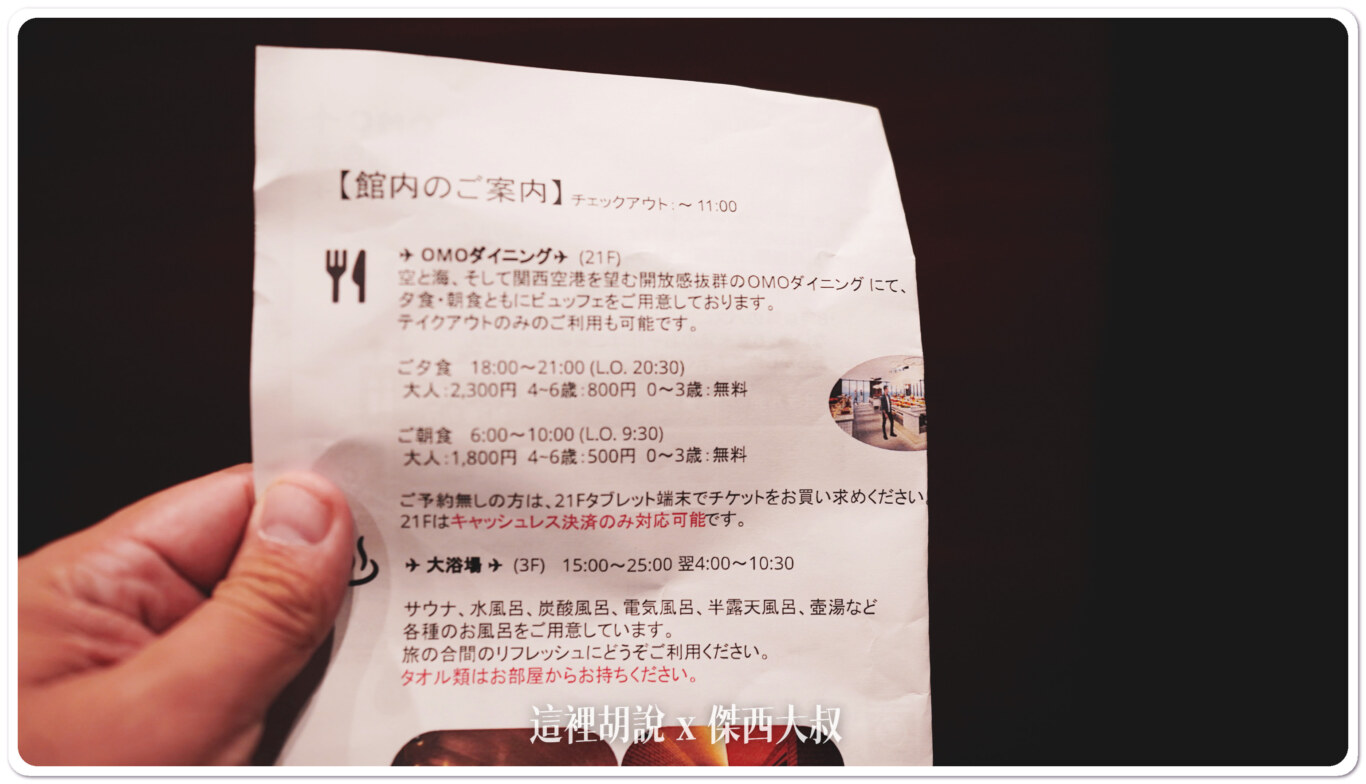 【館内のご案内】 チェックアウト:～ 11:00
✈ OMOダイニング✈ (21F)
空と海、そして関西空港を望む開放感抜群のOMOダイニング にて、
夕食・朝食ともにビュッフェをご用意しております。
テイクアウトのみのご利用も可能です。
ご夕食 18:00～21:00 (L.O. 20:30)
大人:2,300円 4~6歳:800円 0～3歳:無料
ご朝食 6:00～10:00 (L.O. 9:30)
大人:1,800円 4~6歳:500円 0～3歳:無料
ご予約無しの方は、21Fタブレット端末でチケットをお買い求めください。
21Fはキャッシュレス決済のみ対応可能です。
✈ 大浴場 ✈ (3F) 15:00～25:00 翌4:00～10:30
サウナ、水風呂、炭酸風呂、電気風呂、半露天風呂、壺湯など
各種のお風呂をご用意しています。
旅の合間のリフレッシュにどうぞご利用ください。
タオル類はお部屋からお持ちください。
這裡胡說 x 傑西大叔